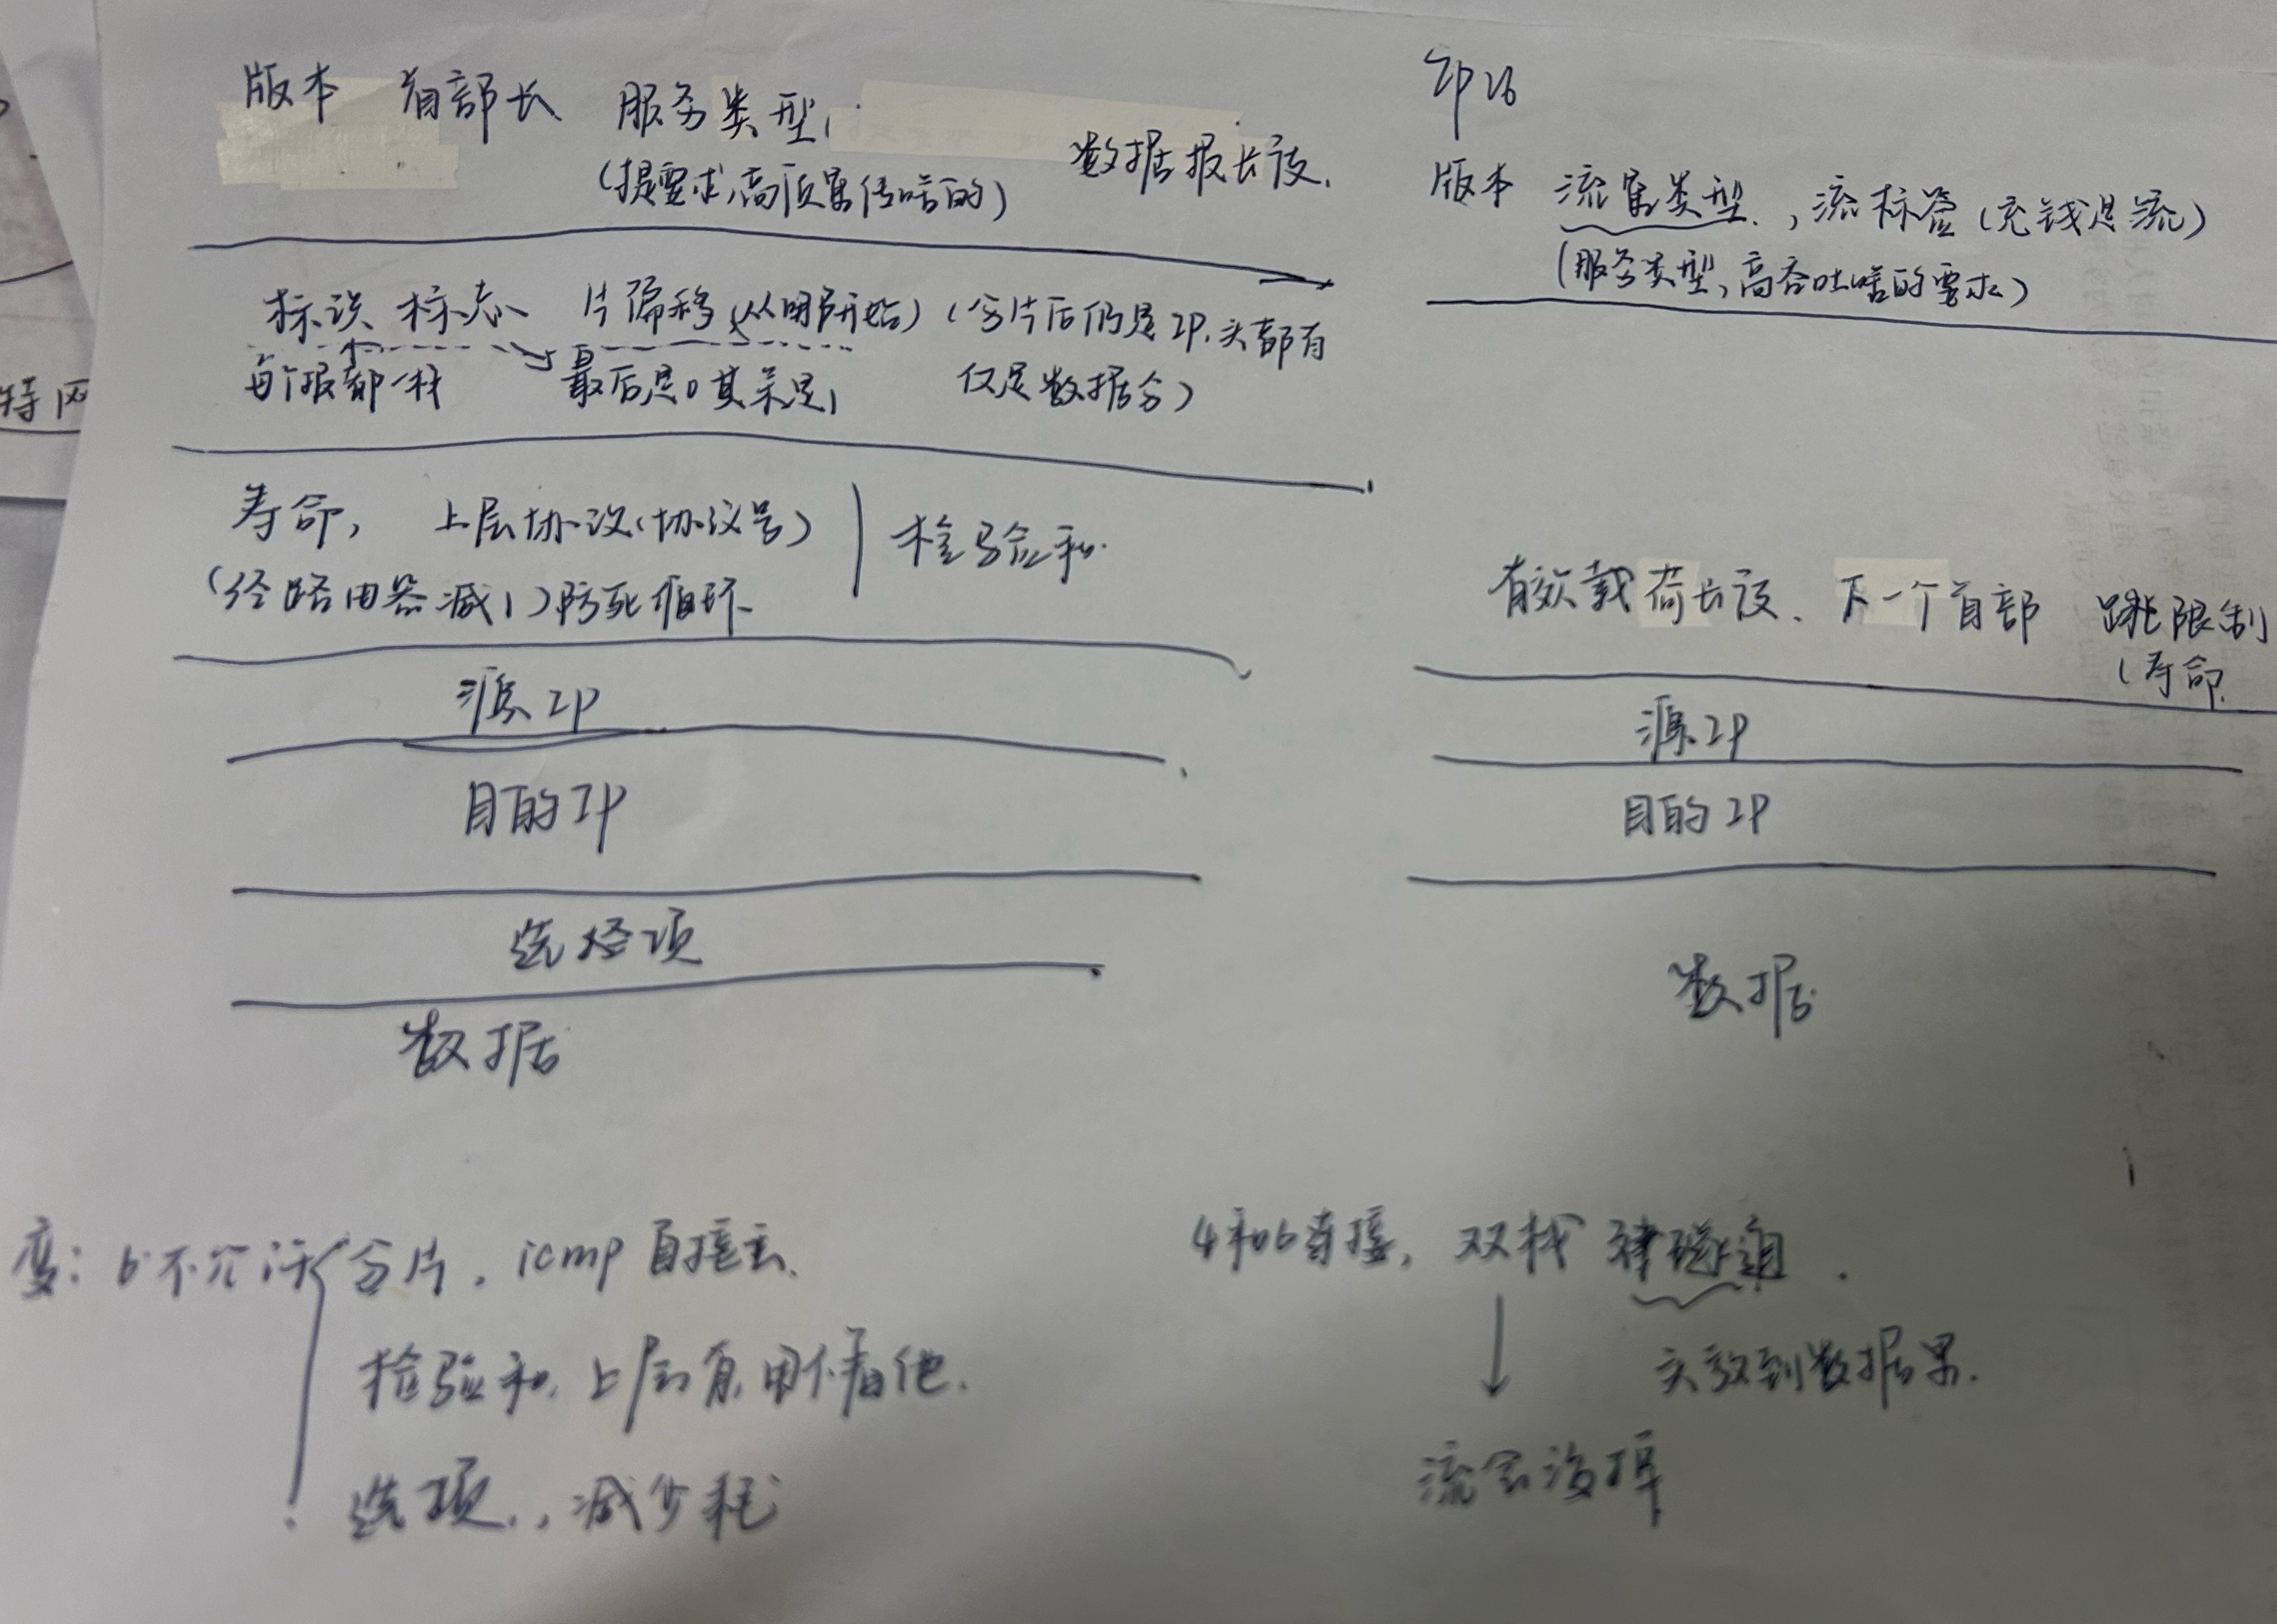 版本 首部长 服务类型,
(提要求,高质量传啥的) 数据报长度.
标识 标志 片偏移(从哪开始)(分片后仍是IP,头部有
每个报都一样 最后是0其余是1 仅是数据分)
寿命, 上层协议(协议号) 检验和.
(经路由器减1)防死循环.
源IP
目的IP
选择项
数据
IPV6
版本 流量类型.,流标签(充钱是流)
(服务类型,高吞吐啥的要求)
有效载荷长度. 下一个首部 跳限制
(寿命.
源IP
目的IP
数据
变: 6不允许分片. icmp直接丢.
检验和. 上层有.用不着他.
选项., 减少耗
4和6直接, 双栈 建隧道.
头放到数据里.
流会没掉
特网